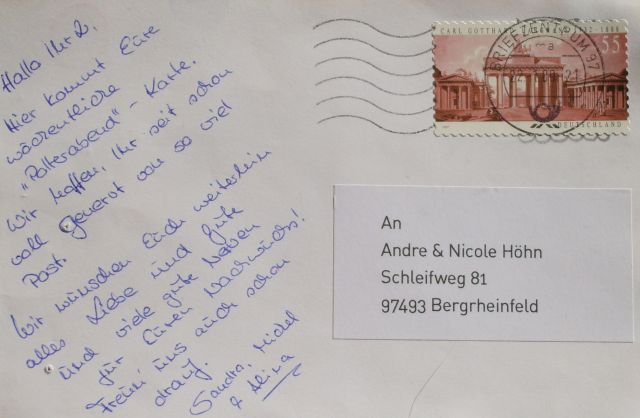 Hallo Ihr 2,
Hier kommt Eure
wöchentliche
"Polterabend"-Karte.
Wir hoffen, Ihr seit schon
voll genervt von so viel
Post.
Wir wünschen Euch weiterhin
alles Liebe und gute
und viele gute Nerven
für Euren Nachwuchs!
Freun' uns auch schon
drauf.
Sandra, Michel
& Alina
CARL GOTTHARD
1808
55
DEUTSCHLAND
BRIEFZENTRUM 97
An
Andre & Nicole Höhn
Schleifweg 81
97493 Bergrheinfeld